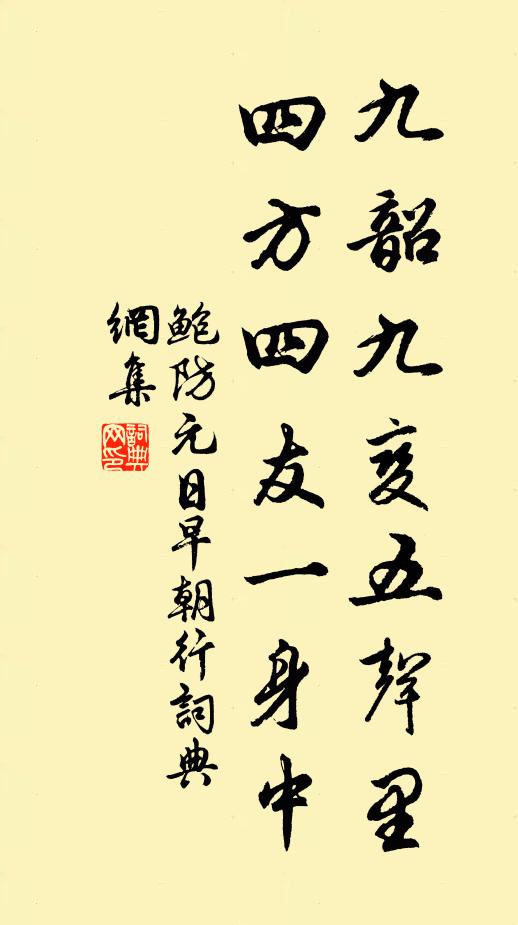 九韶九变五聲里
四方四友一身中
鲍防元日早朝行詞典
網集
詞典
网印